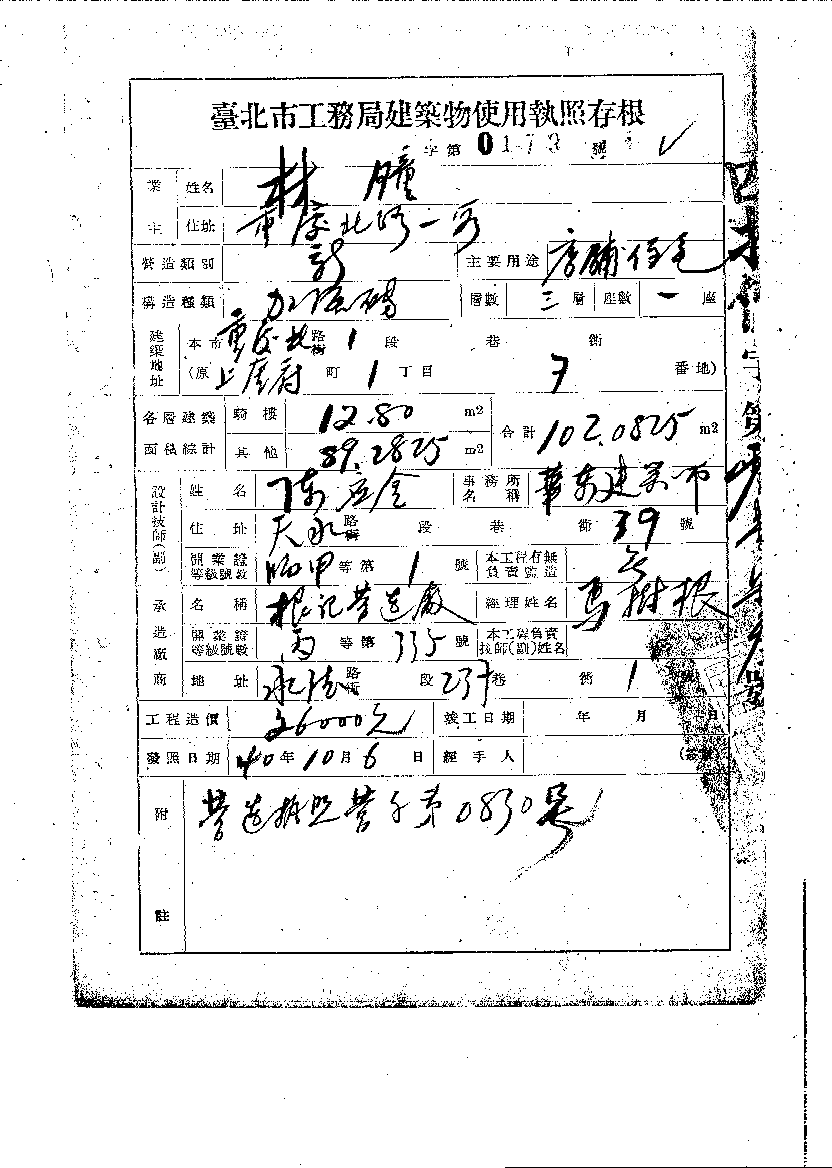 臺北市工務局建築物使用執照存根
字第 0173 號
業主 姓名 林
住址 重慶北路一段
營造類別 新 主要用途 店舖住宅
構造種類 加強磚 層數 三層 座數 一座
建築地址 本市 重慶北 路街 1 段 巷 衖
(原 町 1 丁目 番地)
各層建築面積綜計 騎樓 12.80 m2 合計 102.0825 m2
其他 89.2825 m2
設計技師(副) 姓名 陳 事務所名稱 華東建築師
住址 天水 路街 段 巷 衖 39 號
開業證等級號數 師甲 等第 1 號 本工程有無負責監造
承造廠商 名稱 根記營造廠 經理姓名 馬樹根
開業證等級號數 丙 等第 335 號 本工程負責技師(副)姓名
地址 路街 段 237 巷 衖 1 號
工程造價 26000元 竣工日期 年 月 日
發照日期 40年10月6日 經手人
附註 營造執照營字第0830號